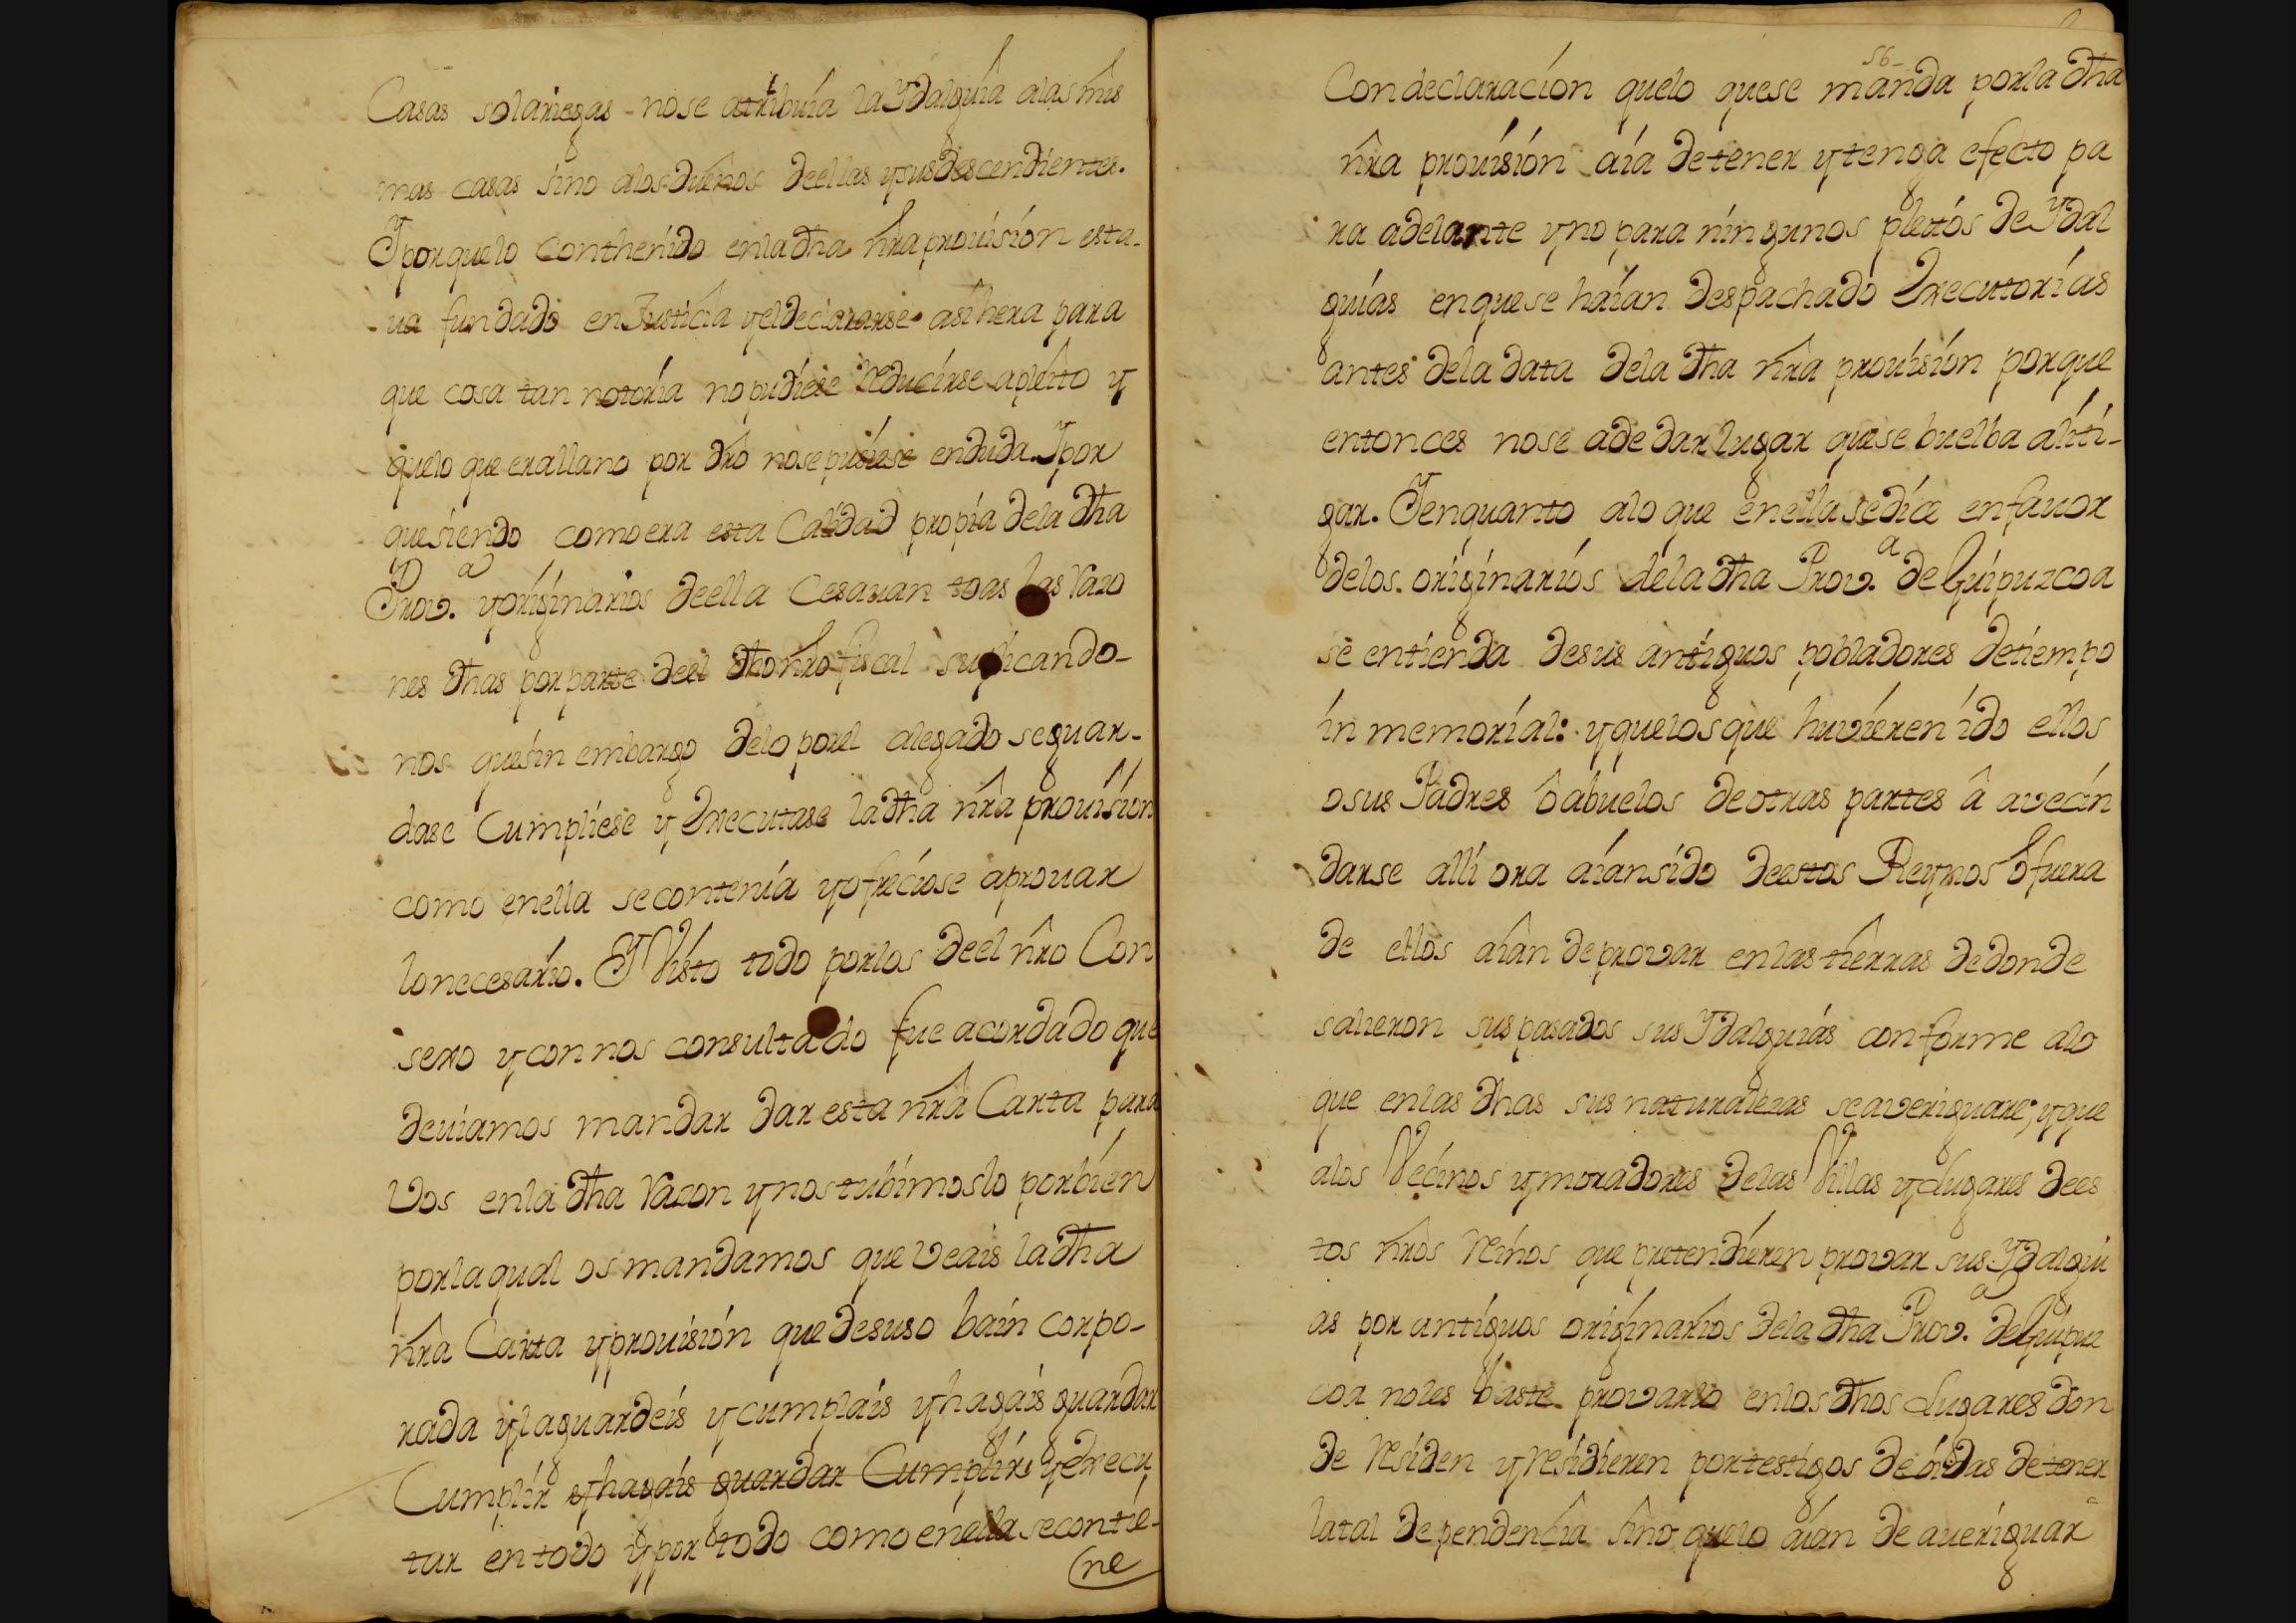 Casas solariegas - nose atribuía la Ydalguía alas mîs
mas casas sino alos dueños deellas ysus descendientes.
Y porquelo Conthenido enla dha nrâ prouision esta-
ua fundado en Justicia yeldeclararse asi hera para
que cosa tan notoria no pudiese Reducirse apleito y
quelo que erallano por drô nose pusiese enduda. Ypor
quesiendo comoera esta Calidad propia dela dha
Prov.a yoriginarios deella Cesauan toas las Razo
nes dhas porparte deel dho nrô fiscal suplicando-
nos quesin embargo delo porel alegado seguar-
dase Cumpliese y Executase ladha nrâ prouisión
como enella secontenía yofreciose aprouar
lonecesario. Y Visto todo porlos deel nrô Con
sexo ycon nos consultado fue acordado que
deuiamos mandar dar esta nrâ Carta para
Vos enla dha Razon ynos tubimoslo porbien
porlaqual os mandamos que veais ladha
nrâ Carta yprouisión que desuso bain corpo-
rada ylaguardeis ycumplais yhagais guardar
Cumplir yhagais guardar Cumplir yexecu
tar entodo ypor todo como enella secontie-
ne
56-
Condeclaracion quelo quese manda porla dha
nrâ prouisión aía detener ytenga efecto pa
ra adelante yno para ningunos pleitos de Ydal
guías enquese haían despachado Executorias
antes dela data dela dha nrâ prouisión porque
entonces nose ade dar lugar quese buelba aliti-
gar. Yenquanto alo que enella sedice enfauor
delos originarios dela dha Prov.a de Guipuzcoa
se entienda desus antiguos pobladores detiempo
in memorial: yquelosque huvieren ido ellos
osus Padres ô abuelos deotras partes â avecin
darse alli ora aíansido deestos Reynos ô fuera
de ellos aían deprovar enlas tierras dedonde
salieron suspasados sus Ydalguías conforme alo
que enlas dhas sus naturalezas seaveriguare; yque
alos Vecinos ymoradores delas Villas yLugares dees
tos nrôs Reinos que pretendieren provar sus Ydalgui
as por antiguos originarios dela dha Prov.a deGuipuz
coa noles baste provarlo enlos dhos Lugares don
de Residen yResidieren portestigos de oidas detener
latal dependencia sino quelo aían de aueriguar